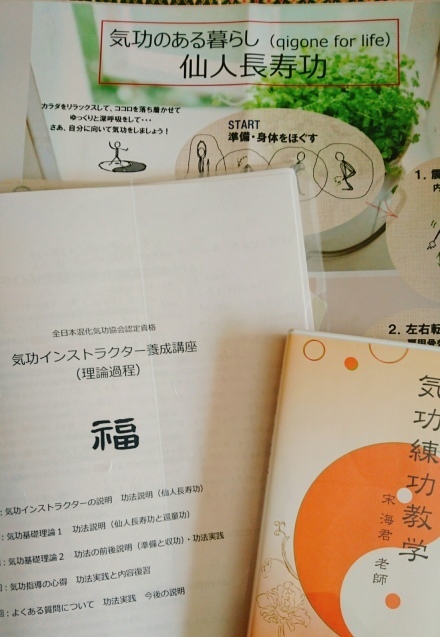 気功のある暮らし（qigone for life）
仙人長寿功
カラダをリラックスして、ココロを落ち着かせて
ゆっくりと深呼吸をして・・・
さあ、自分に向いて気功をしましょう！
START
準備・身体をほぐす
1.
2. 左右転
全日本混化気功協会認定資格
気功インストラクター養成講座
（理論過程）
福
：気功インストラクターの説明　功法説明（仙人長寿功）
：気功基礎理論１　功法説明（仙人長寿功と巡童功）
：気功基礎理論２　功法の前後説明（準備と収功）・功法実践
：気功指導の心得　功法実践と内容復習
：よくある質問について　功法実践　今後の説明
気功練功教学
宋海君 老師